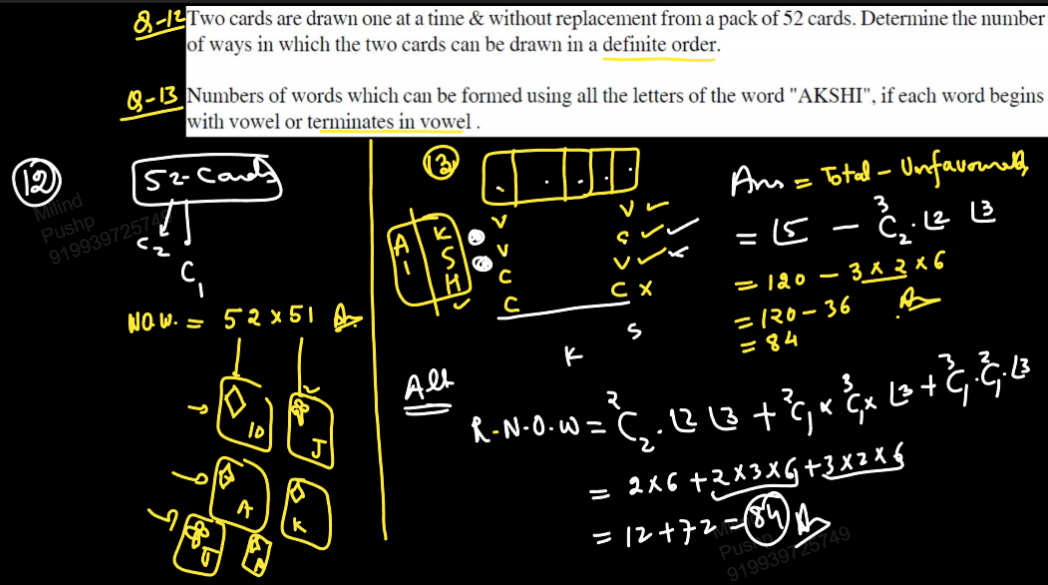 Q-12 Two cards are drawn one at a time & without replacement from a pack of 52 cards. Determine the number
of ways in which the two cards can be drawn in a definite order.
Q-13 Numbers of words which can be formed using all the letters of the word "AKSHI", if each word begins
with vowel or terminates in vowel .
(12)
52-Cards
C2
C1
N.O.W. = 52 x 51 A
10
J
A
K
J
A
Milind
Pushp
919939725749
(13)
A K
I S
H
V V ✓
V C ✓ ✓
C V ✓ ✓
C C x
K S
Ans = Total - Unfavourable
= ⌊5 - ³C₂ . ⌊2 ⌊3
= 120 - 3 x 2 x 6
= 120 - 36
= 84
Alt
R-N.O.W = ²C₂ . ⌊2 ⌊3 + ²C₁ x ³C₁ x ⌊3 + ³C₁ . ²C₁ . ⌊3
= 2x6 + 2x3x6 + 3x2x6
= 12 + 72 = 84 A
Pushp
919939725749